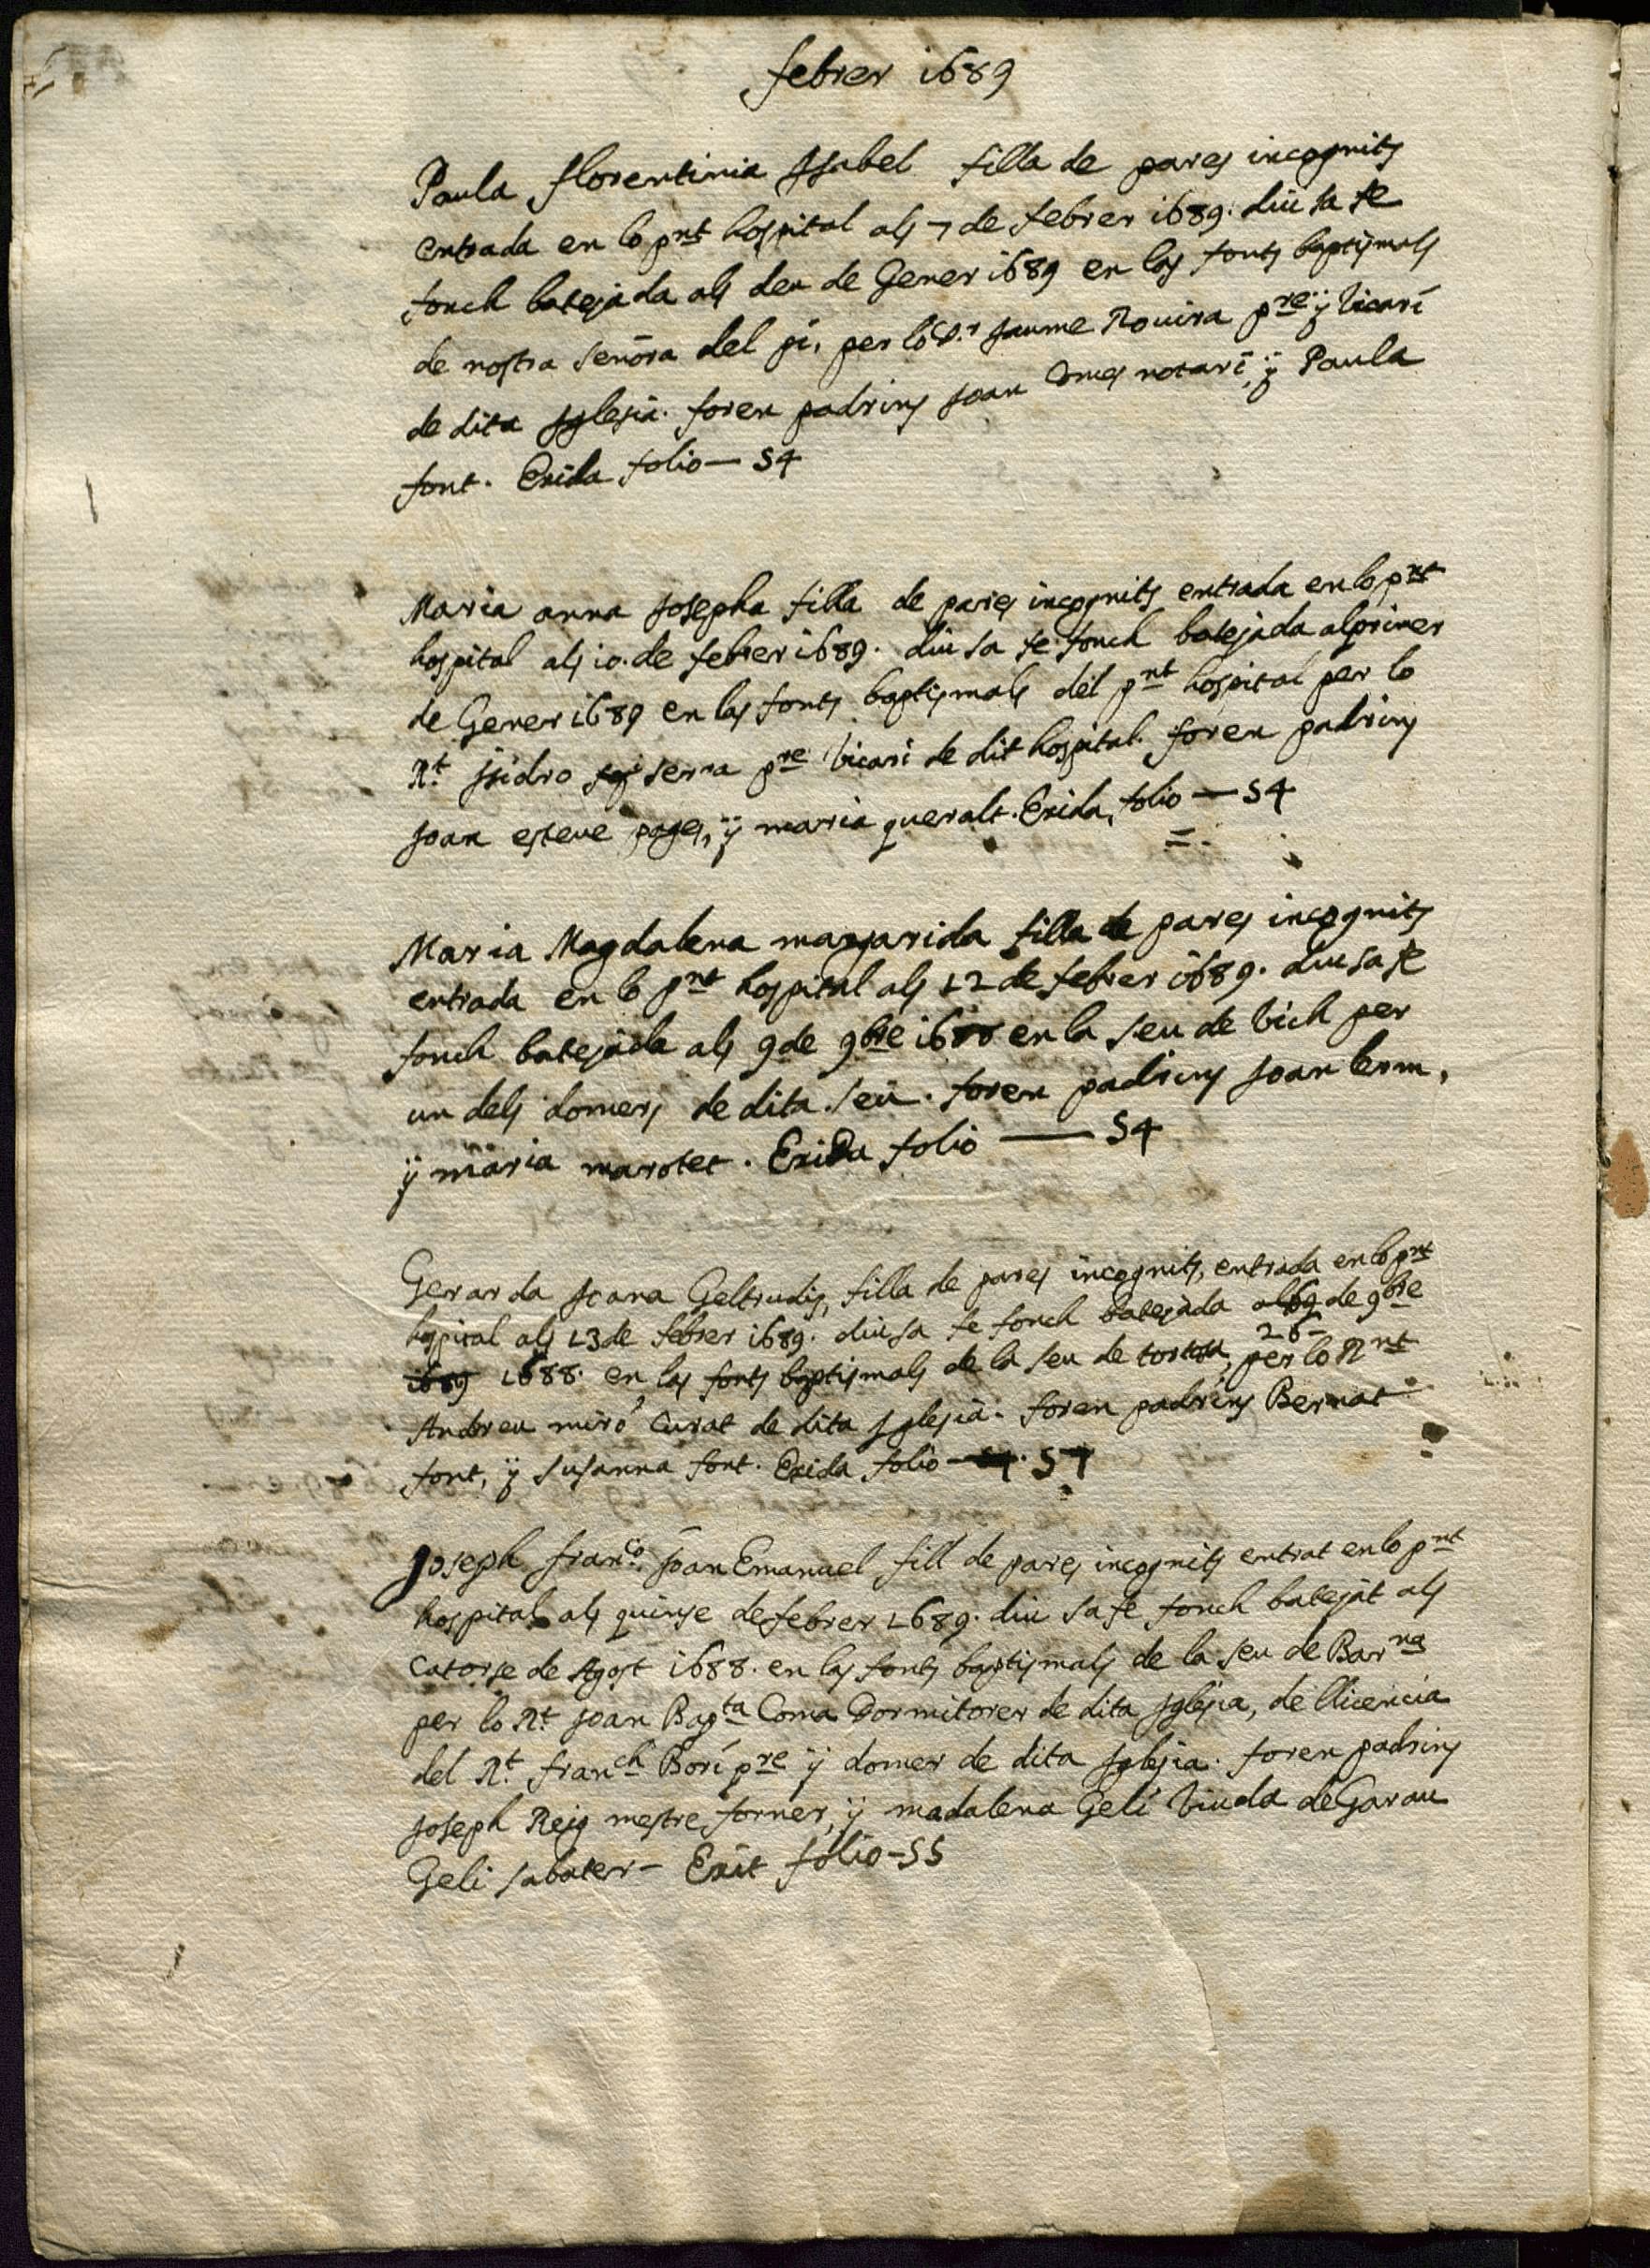 febrer 1689
Paula florentinia Isabel filla de pares incognits
entrada en lo pnt hospital als 7 de febrer 1689. diu sa fe
fonch batejada als deu de Gener 1689 en las fonts baptismals
de nostra señora del pi, per lo Dr Jaume Rouira pre y Vicari
de dita Iglesia. foren padrins Joan notari, y Paula
font. Exida folio — 54
Maria anna Josepha filla de pares incognits entrada en lo pnt
hospital als 10. de febrer 1689. diu sa fe fonch batejada al primer
de Gener 1689 en las fonts baptismals del pnt hospital per lo
Rt Isidro serra pre Vicari de dit hospital. foren padrins
Joan esteue pages, y maria queralt. Exida, folio — 54
Maria Magdalena margarida filla de pares incognits
entrada en lo pnt hospital als 12 de febrer 1689. diu sa fe
fonch batejada als 9 de 9bre 1688 en la seu de Vich per
un dels domers de dita seu. foren padrins Joan
y maria marotet. Exida folio — 54
Gerarda Joana Geltrudis, filla de pares incognits, entrada en lo pnt
hospital als 13 de febrer 1689. diu sa fe fonch batejada als 26 de 9bre
1689 1688. en las fonts baptismals de la seu de tortosa, per lo Rnt
Andreu miró Curat de dita Iglesia. foren padrins Bernat
font, y susanna font. Exida folio — 54
Joseph franco. Joan Emanuel fill de pares incognits entrat en lo pnt
hospital als quinse de febrer 1689. diu sa fe, fonch batejat als
Catorse de Agost 1688. en las fonts baptismals de la seu de Barna
per lo Rt Joan Bapta Coma Dormitorer de dita Iglesia, de llicencia
del Rt. franch Borí pre y domer de dita Iglesia. foren padrins
Joseph Reig mestre forner, y madalena Geli Viuda de Garau
Geli sabater — Exit folio — 55